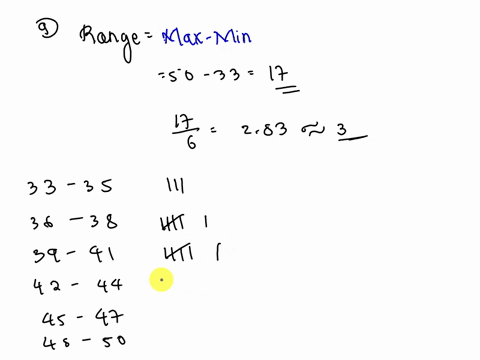 a) Range = Max-Min
= 50 - 33 = 17
17/6 = 2.83 ≈ 3
33 - 35 |||
36 - 38 𝍸 |
39 - 41 𝍸 |
42 - 44
45 - 47
48 - 50